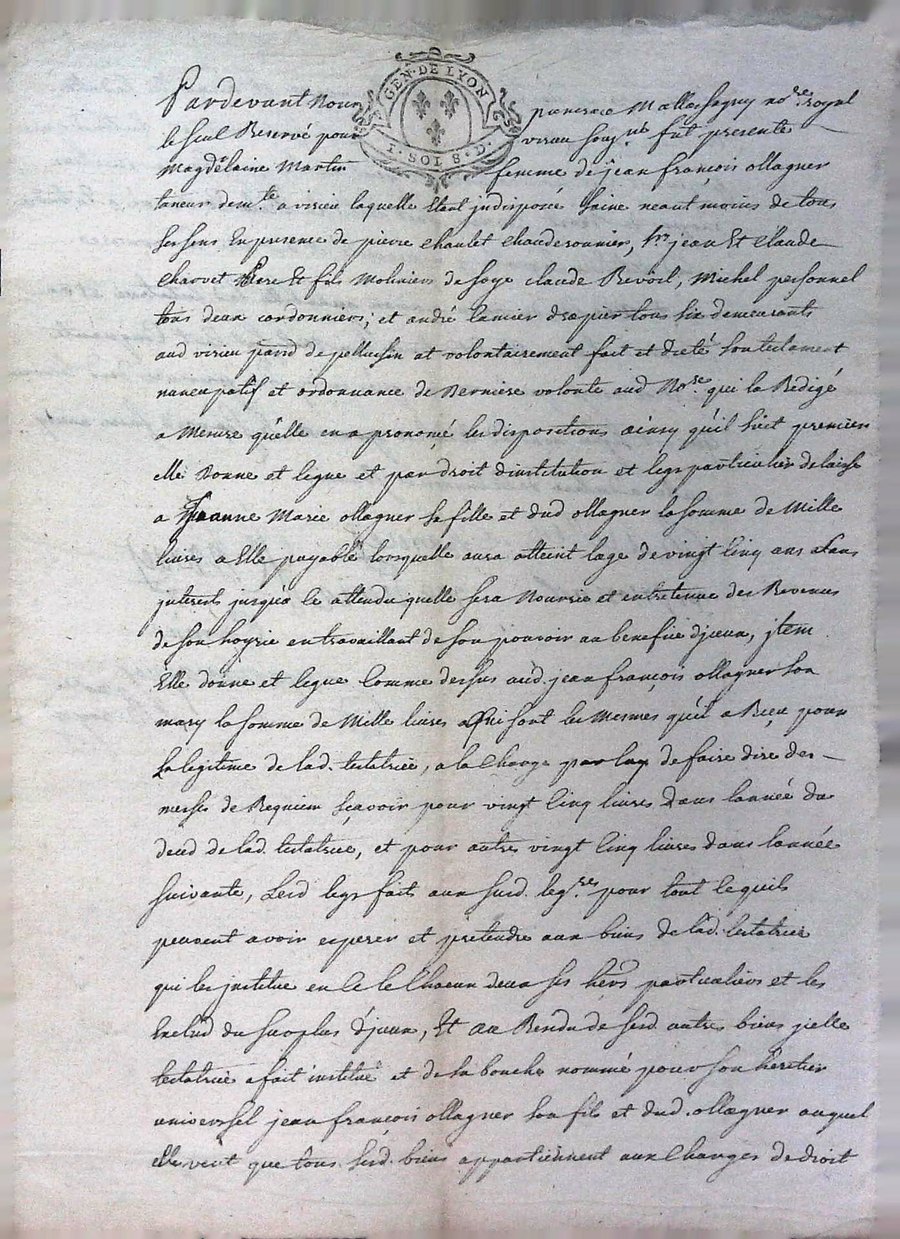 GEN·DE LYON
1·SOL 8·D·
Pardevant Nous Mallassagny no.re royal
le seul Reservé pour virieu soug.né fut presente
Magdelaine Martin femme de jean françois ollagner
taneur dem.te a virieu laquelle Etant jndisposée saine neaut moins de tous
ses sens En presence de pierre Chaulet Chauderonnier, srs jean Et Claude
Charvet Pere Et fils Moliniers de soye Claude Revoil, Michel personnel
tous deux cordonniers; et andré Lamier drapier tous six demeurants
aud virieu parr.d de pellussin at volontairement fait et dicté son testament
nuncupatif et ordonnance de Derniere volonte aud No.re qui la Redigé
a Mesure qu'elle en a prononcé les dispositions ainsy qu'il suit premierem
elle Donne et legue et par droit d'institution et legs particulier delaisse
a Jeanne Marie ollagner sa fille et dud ollagner la somme de Mille
livres a Elle payable lorsquelle aura atteint lage de vingt cinq ans et sans
jnterets jusqu'a ce attendu quelle sera Nourrie et entretenue des Revenus
de son hoyrie en travaillant de son pouvoir au benefice djceux, jtem
Elle donne et legue Comme dessus aud. jean françois ollagner son
mary la somme de Mille livres Qui sont les Mesmes qu'il a Reçu pour
La legitime de lad. testatrice, a la Charge par luy de faire dire des
messes de Requiem sçavoir pour vingt cinq livres Dans lannée du
deced de lad. testatrice, et pour autres vingt cinq livres dans lannée
suivante, Lesd legs fait aux susd. leg.res pour tout ce quils
peuvent avoir esperer et pretendre aux biens de lad. testatrice
qui les jnstitue en ce le Chacun deux ses hers particuliers et les
Exclud du surplus d'jceux, Et au Rendu de sesd autres biens jcelle
testatrice a fait institué et de sa bouche nommé pour son héretier
universsel jean françois ollagner son fils et dud. ollagner auquel
Elle veut que tous sesd. biens appartiennent aux Charges de droit